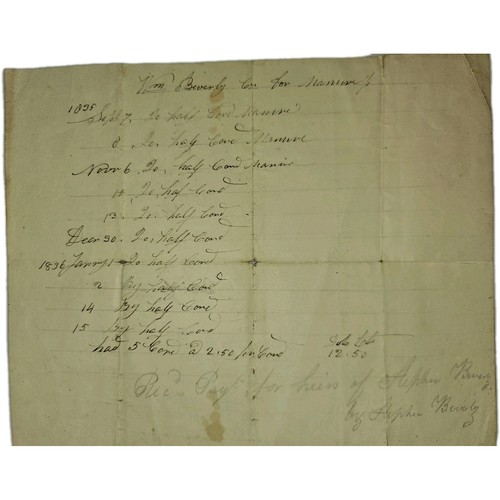 Wm Beverly Cr for Manure
1835
Sept 7. To half Cord Manure
8 To half Cord Manure
Novr 6 To half Cord Manure
To half Cord
13. To half Cord
Decr 30. To half Cord
1836 Janry 1 To half Cord
2 By half Cord
14 By half Cord
15 By half Cord
had 5 Cord a 2.50 per Cord 12.50
Recd Payt for heirs of Stephen Beverly
by Stephen Beverly